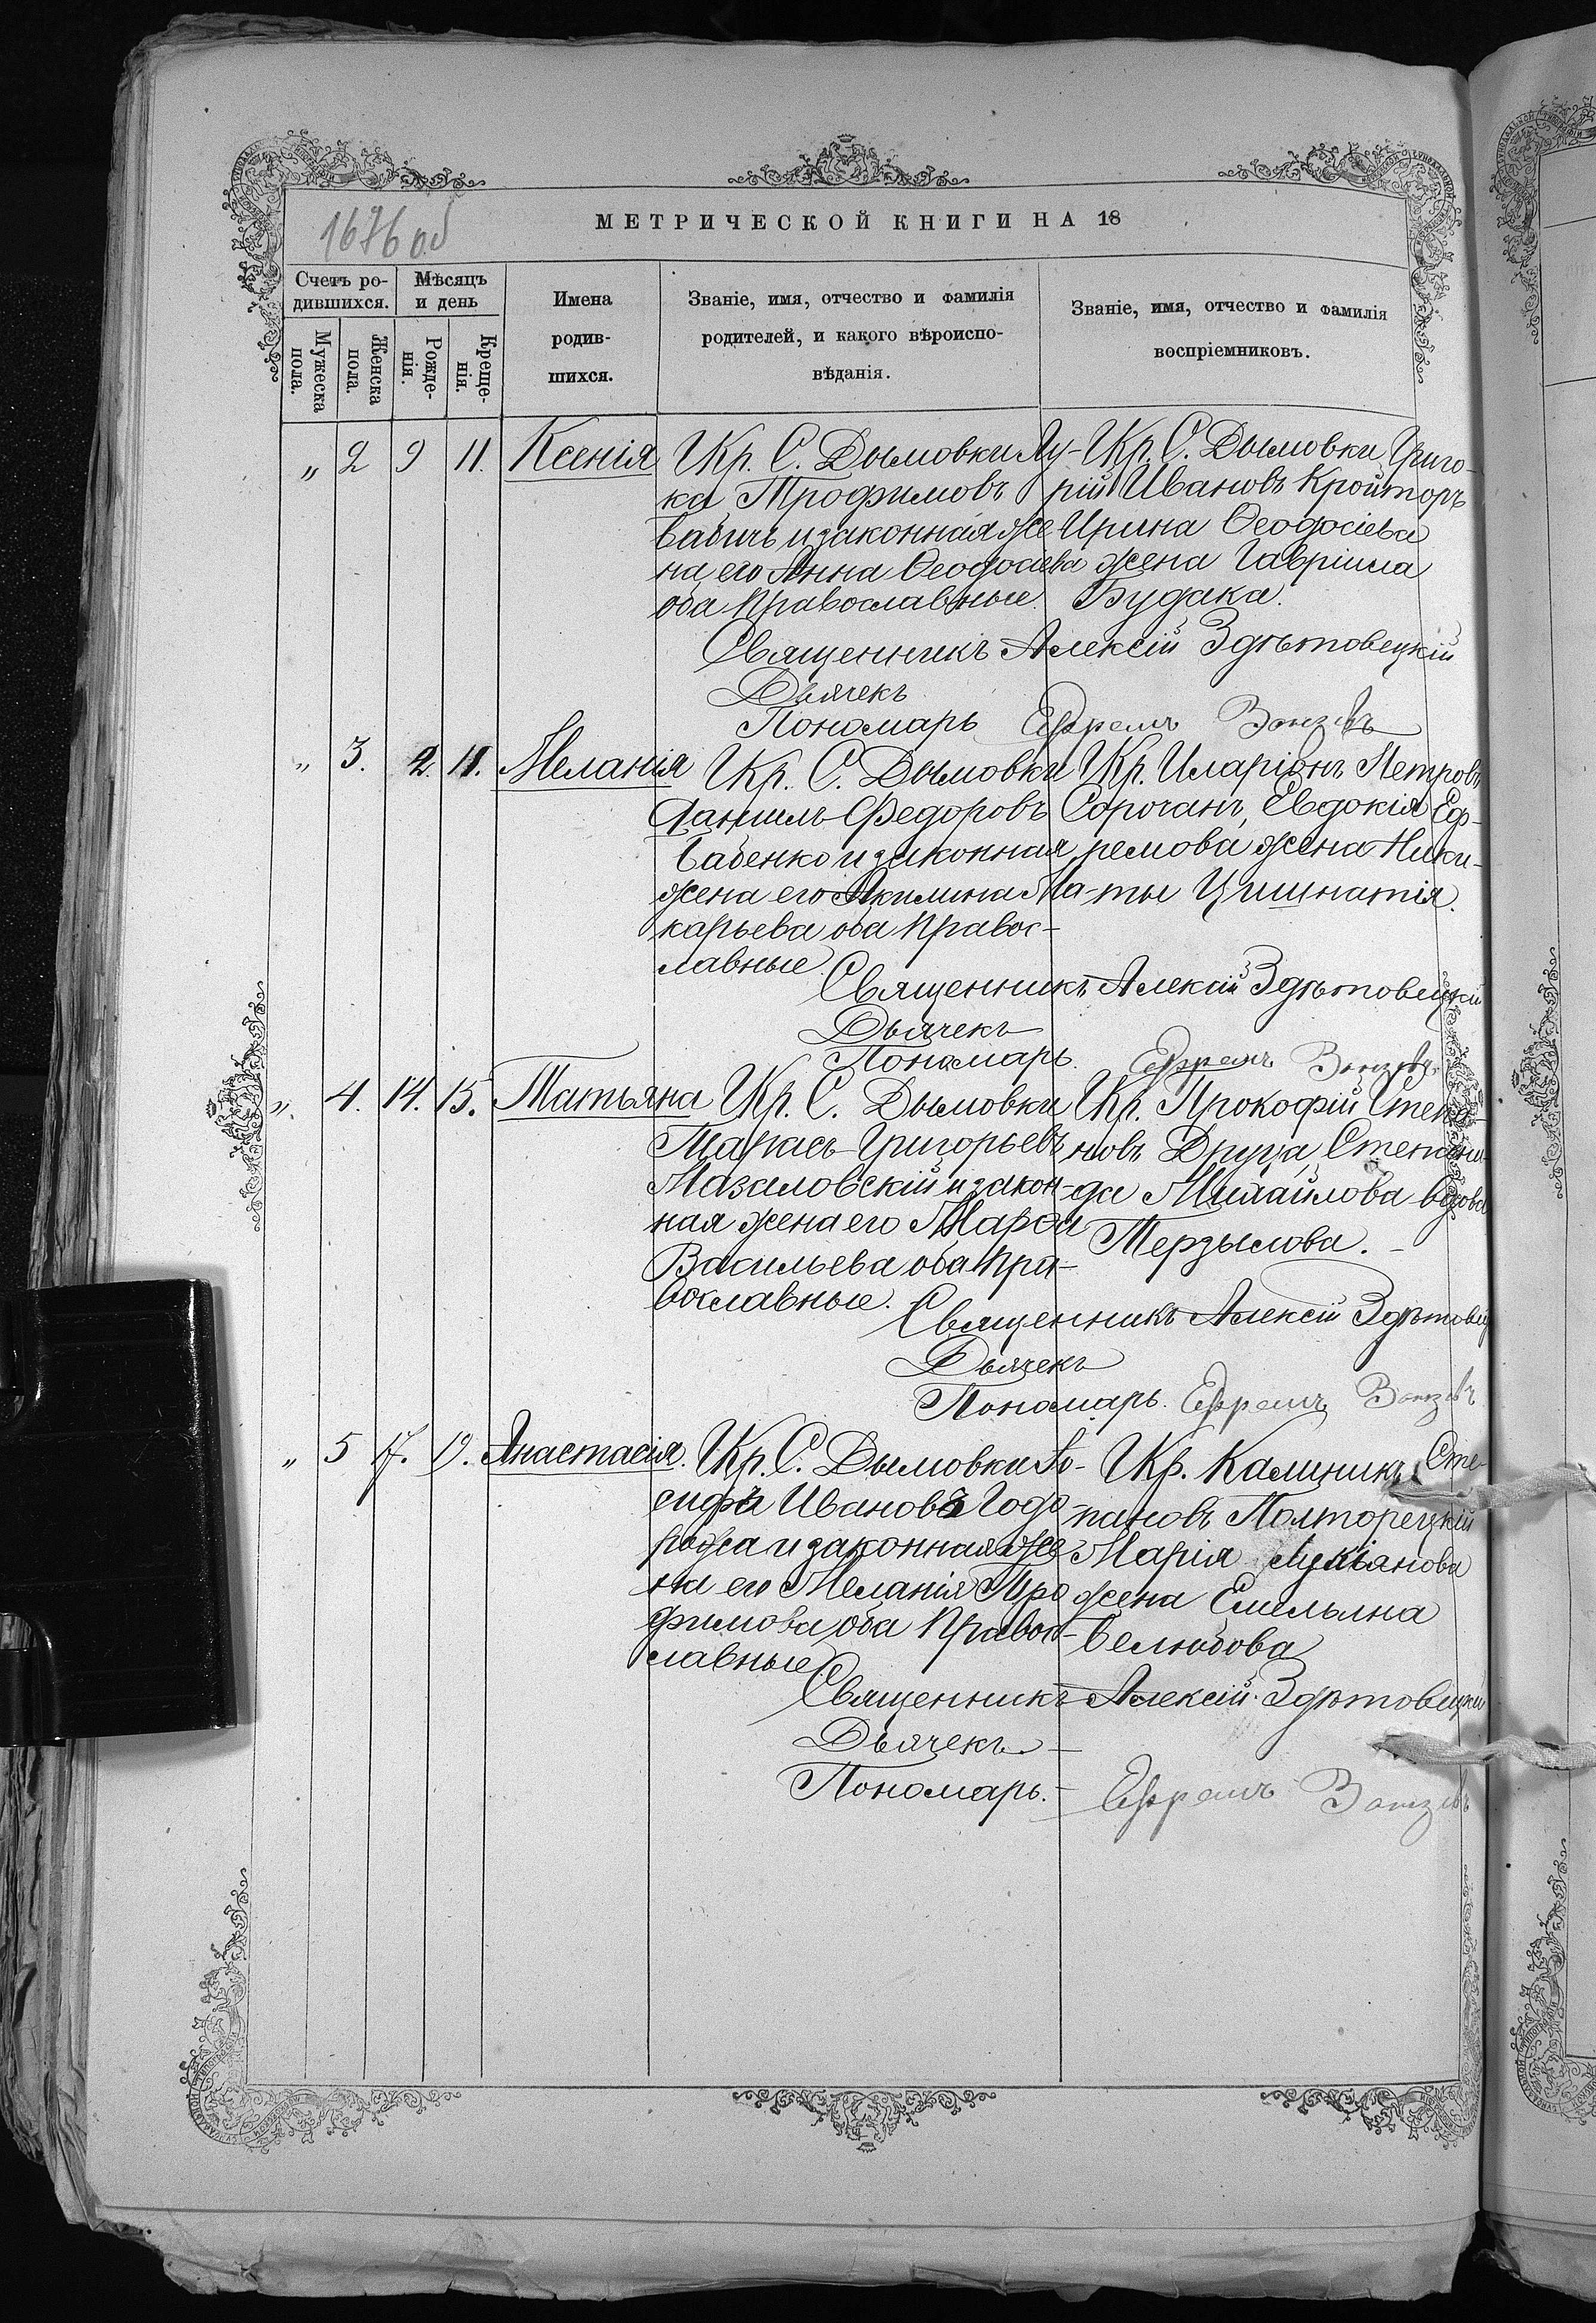 1676 об
МЕТРИЧЕСКОЙ КНИГИ НА 18
Счетъ ро-
дившихся.
Мѣсяцъ
и день
Мужеска
пола.
Женска
пола.
Рожде-
нія.
Креще-
нія.
Имена
родив-
шихся.
Званіе, имя, отчество и фамилія
родителей, и какого вѣроиспо-
вѣданія.
Званіе, имя, отчество и фамилія
воспріемниковъ.
„ 2 9 11. Ксенія
Цкр. С. Дымовки Лу-
ка Трофимовъ
Бабичъ и законная же
на его Анна Ѳеодосіева
оба православные.
Цкр. С. Дымовки Григо-
рій Ивановъ Кройторъ
Ирина Ѳеодосіева
жена Гавріила
Будака.
Священникъ Алексій Здѣтовецкій
Дьячекъ
Пономарь Ефремъ
„ 3. 2. 11. Меланія
Цкр. С. Дымовки
Даніилъ Федоровъ
Бабенко и законная
жена его Акилина Ма-
карьева оба правос-
лавные.
Цкр. Иларіонъ Петровъ
Сорочанъ, Евдокія Еф-
ремова жена Ники-
ты Цишнатія.
Священникъ Алексій Здѣтовецкій
Дьячекъ
Пономарь. Ефремъ
„ 4. 14. 15. Татьяна
Цкр. С. Дымовки
Тарасъ Григорьевъ
Мазаловскій и закон-
ная жена его Марѳа
Васильева оба пра-
вославные.
Цкр. Прокофій Степа-
новъ Друца, Степани-
да Михайлова вдова
Терзылова.
Священникъ Алексій
Дьячекъ
Пономарь. Ефремъ
„ 5 17. 19. Анастасія.
Цкр. С. Дымовки Іо-
сифъ Ивановъ Годо-
рожа и законная же
на его Меланія Тро
фимова оба правос-
лавные
Цкр. Калиникъ Сте-
пановъ Полторецкій
Марія Лукіянова
жена Емельяна
Белюбова
Священникъ Алексій Здѣтовецкій
Дьячекъ
Пономарь. Ефремъ